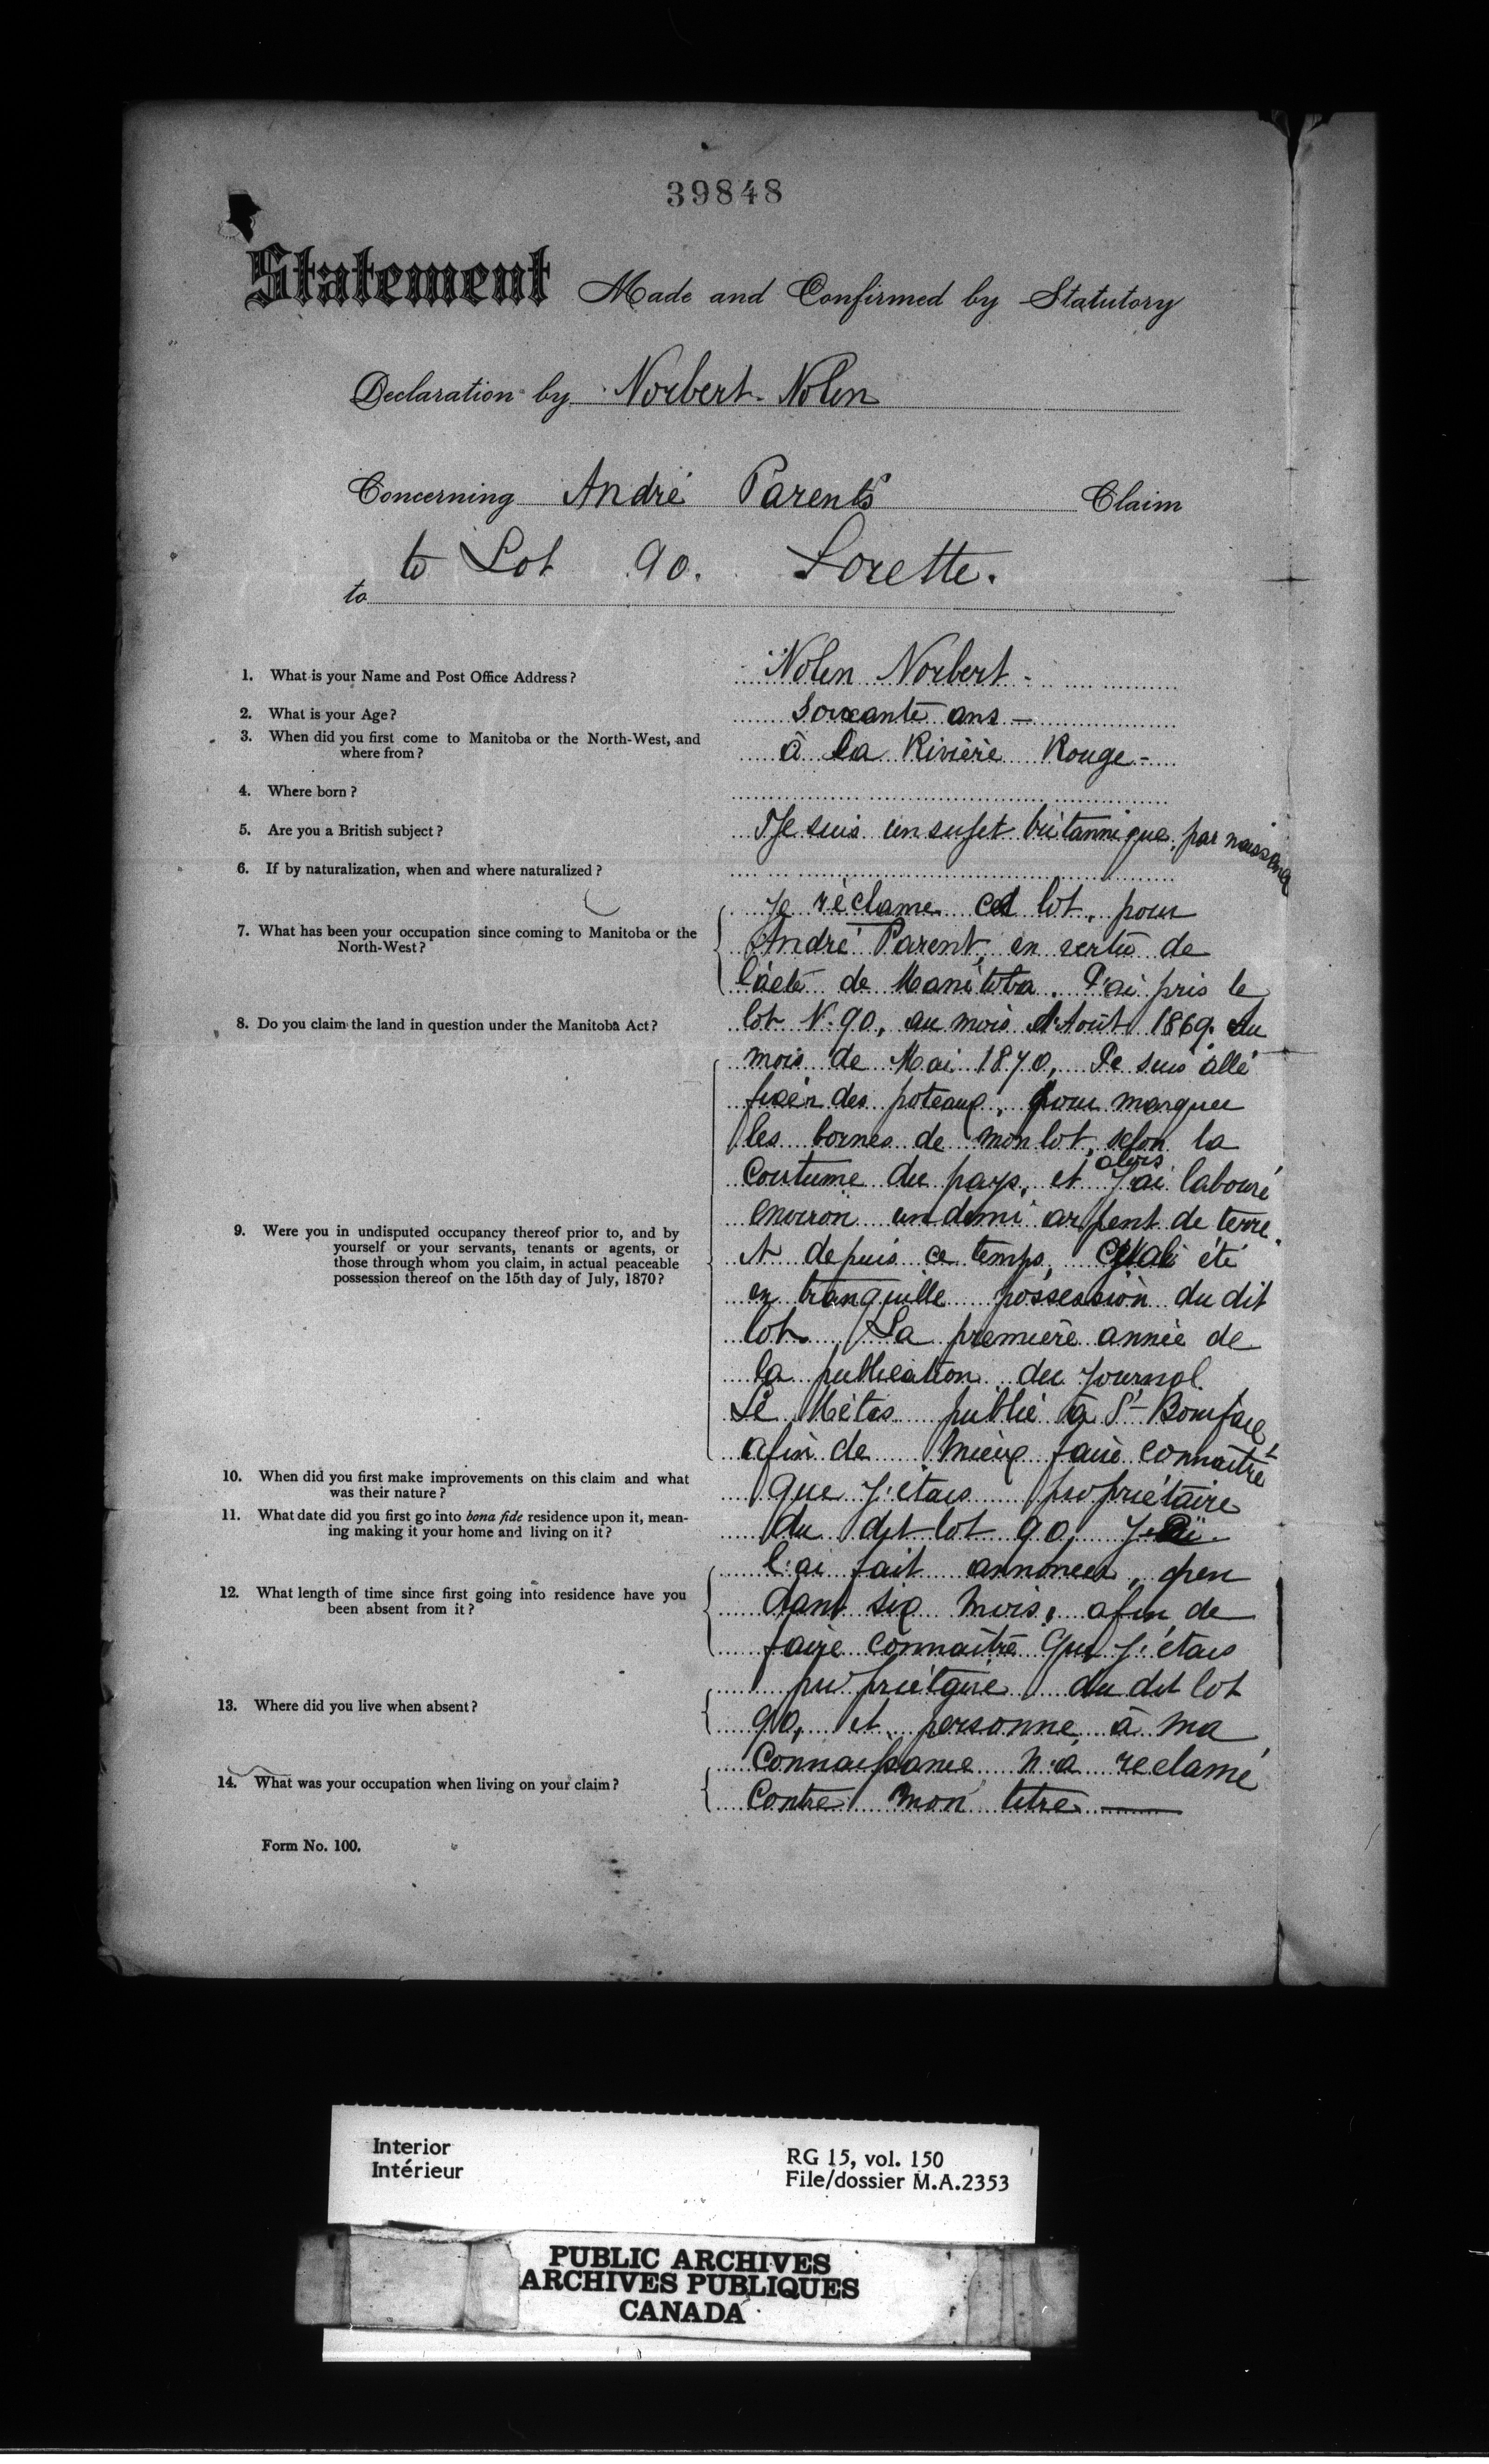 39848
Statement Made and Confirmed by Statutory
Declaration by Norbert Nolin
Concerning André Parent's Claim
to to Lot 90. Lorette.
1. What is your Name and Post Office Address? Nolin Norbert -
2. What is your Age? Soixante ans —
3. When did you first come to Manitoba or the North-West, and
where from? à la Rivière Rouge -
4. Where born?
5. Are you a British subject? Je suis un sujet britannique, par naissance
6. If by naturalization, when and where naturalized?
7. What has been your occupation since coming to Manitoba or the
North-West?
8. Do you claim the land in question under the Manitoba Act?
9. Were you in undisputed occupancy thereof prior to, and by
yourself or your servants, tenants or agents, or
those through whom you claim, in actual peaceable
possession thereof on the 15th day of July, 1870?
10. When did you first make improvements on this claim and what
was their nature?
11. What date did you first go into bona fide residence upon it, mean-
ing making it your home and living on it?
12. What length of time since first going into residence have you
been absent from it?
13. Where did you live when absent?
14. What was your occupation when living on your claim?
Je réclame cet lot, pour
André Parent, en vertu de
l'acte de Manitoba. J'ai pris le
lot N. 90, au mois d'Août 1869. Au
mois de Mai 1870, Je suis allé
fixer des poteaux, pour marquer
les bornes de mon lot, selon la
coutume du pays, et alors j'ai labouré
environ un demi arpent de terre.
et depuis ce temps, été
en tranquille possession du dit
lot. La première année de
la publication du journal.
Le Métis publié à St- Boniface
afin de mieux faire connaître
que j'étais propriétaire
du dit lot 90, j'ai
l'ai fait annoncer, pen
dant six mois, afin de
faire connaître que j'étais
propriétaire du dit lot
90, et personne, à ma
connaissance n'a reclamé
contre mon titre —
Form No. 100.
Interior
Intérieur
RG 15, vol. 150
File/dossier M.A.2353
PUBLIC ARCHIVES
ARCHIVES PUBLIQUES
CANADA